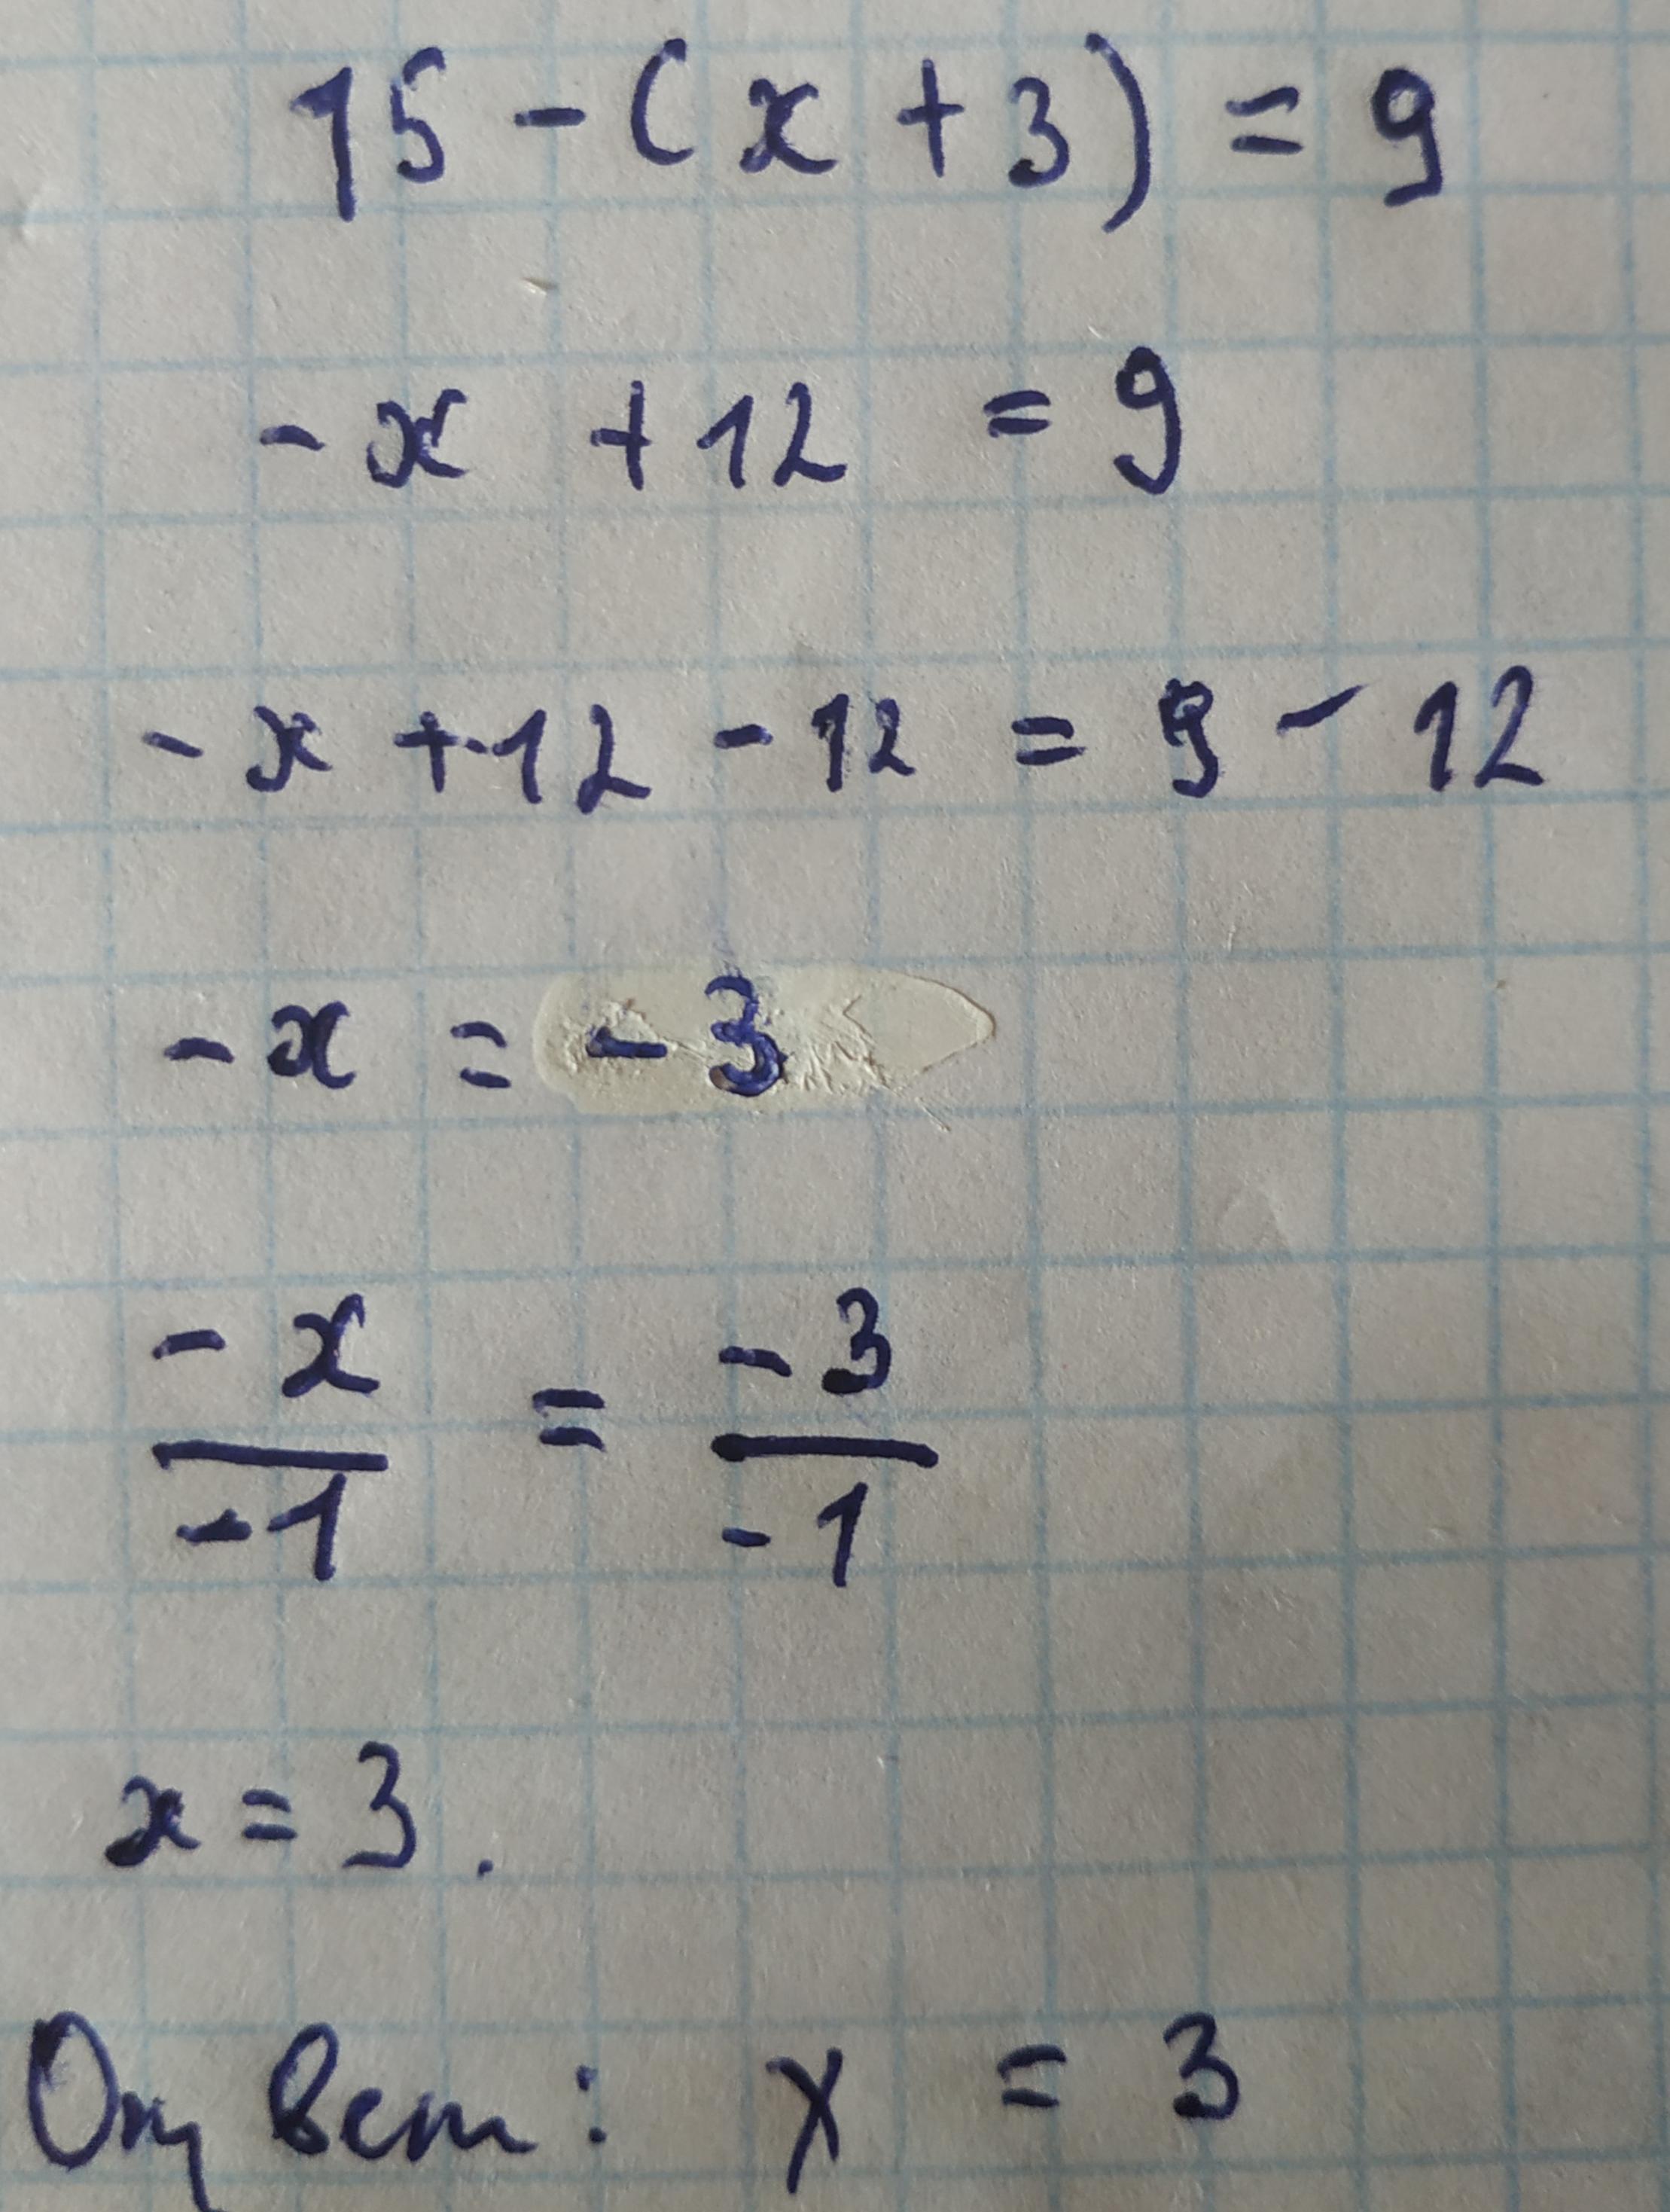 15 - (x + 3) = 9
- x + 12 = 9
- x + 12 - 12 = 9 - 12
- x = - 3
- x / - 1 = - 3 / - 1
x = 3.
Ответ: x = 3